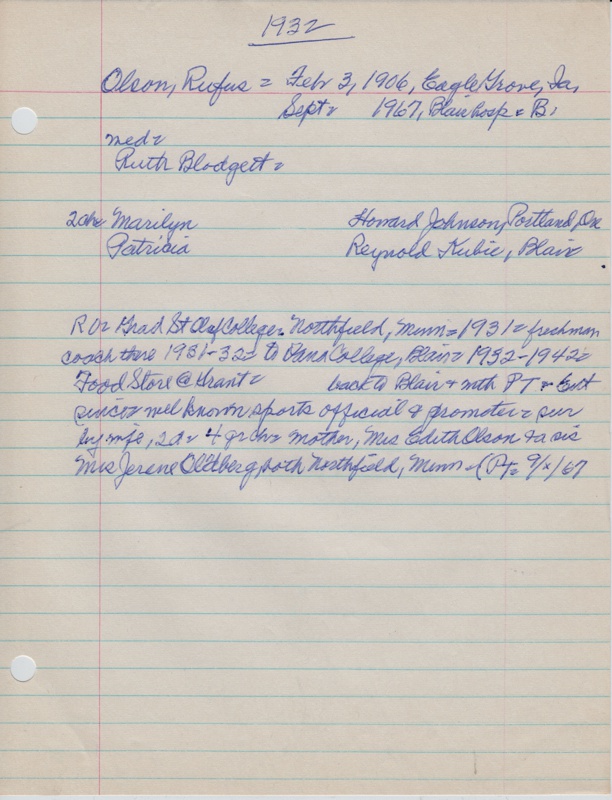 1932
Olson, Rufus = Febr 3, 1906, Eagle Grove, Ia,
Sept = 1967, Blair hosp & B;
med =
Ruth Blodgett =
2ch = Marilyn Howard Johnson, Portland, Ore
Patricia Reynold Kubie, Blair
R O = Grad St Olaf College, Northfield, Minn = 1931 = freshman
coach there 1931-32 = to Dana College, Blair = 1932-1942 =
Food Store @ Grant = back to Blair & with P T =
since = well known sports official & promoter = sur
by wife, 2 d = 4 gr ch = mother, Mrs Edith Olson & a sis
Mrs Jerene Oldberg, both Northfield, Minn = (PT = 9/x/67